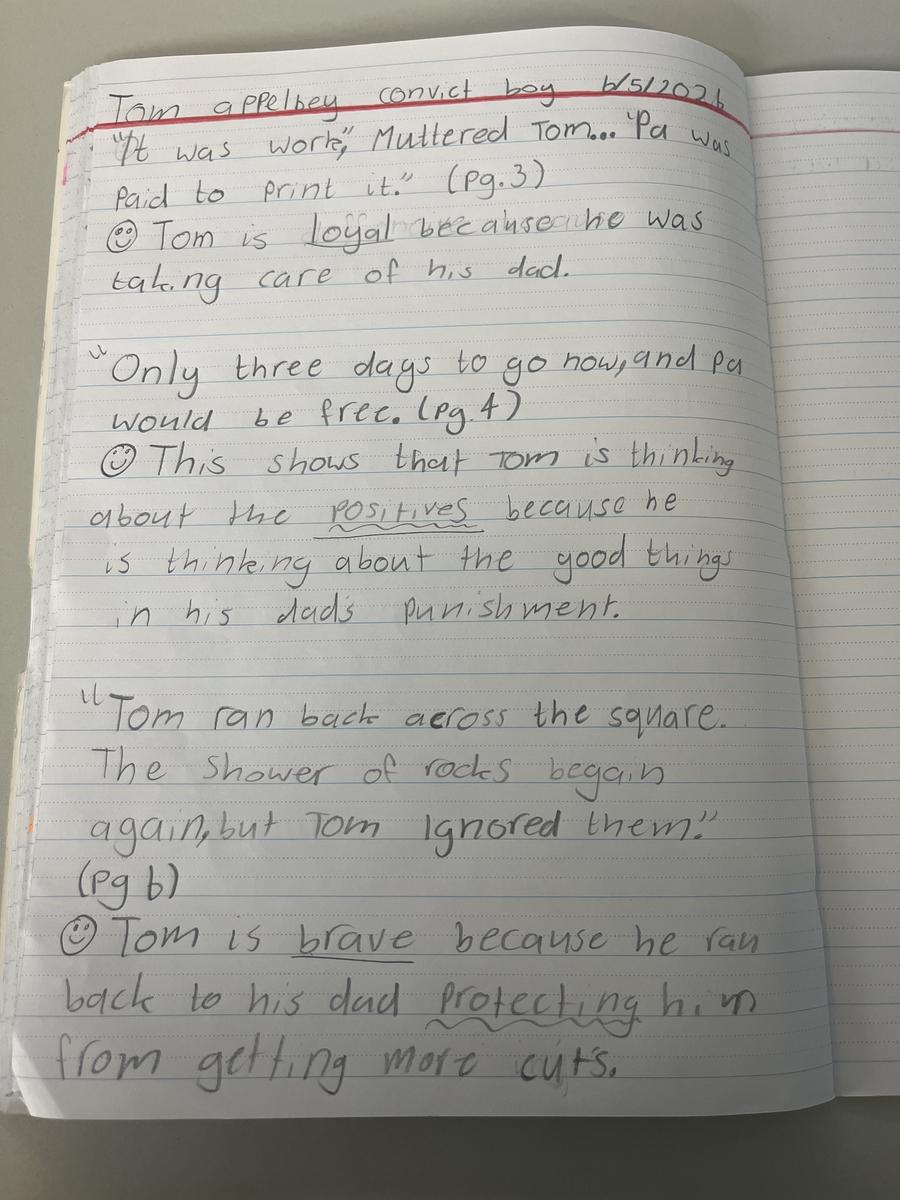 Tom appelbey convict boy 6/5/2026
"It was work," Muttered Tom... "Pa was
Paid to print it." (pg.3)
Tom is loyal because he was
taking care of his dad.
"Only three days to go now, and pa
would be free. (pg.4)
This shows that Tom is thinking
about the positives because he
is thinking about the good things
in his dad's punishment.
"Tom ran back across the square.
The shower of rocks begain
again, but Tom Ignored them."
(pg 6)
Tom is brave because he ran
back to his dad protecting him
from getting more cuts.